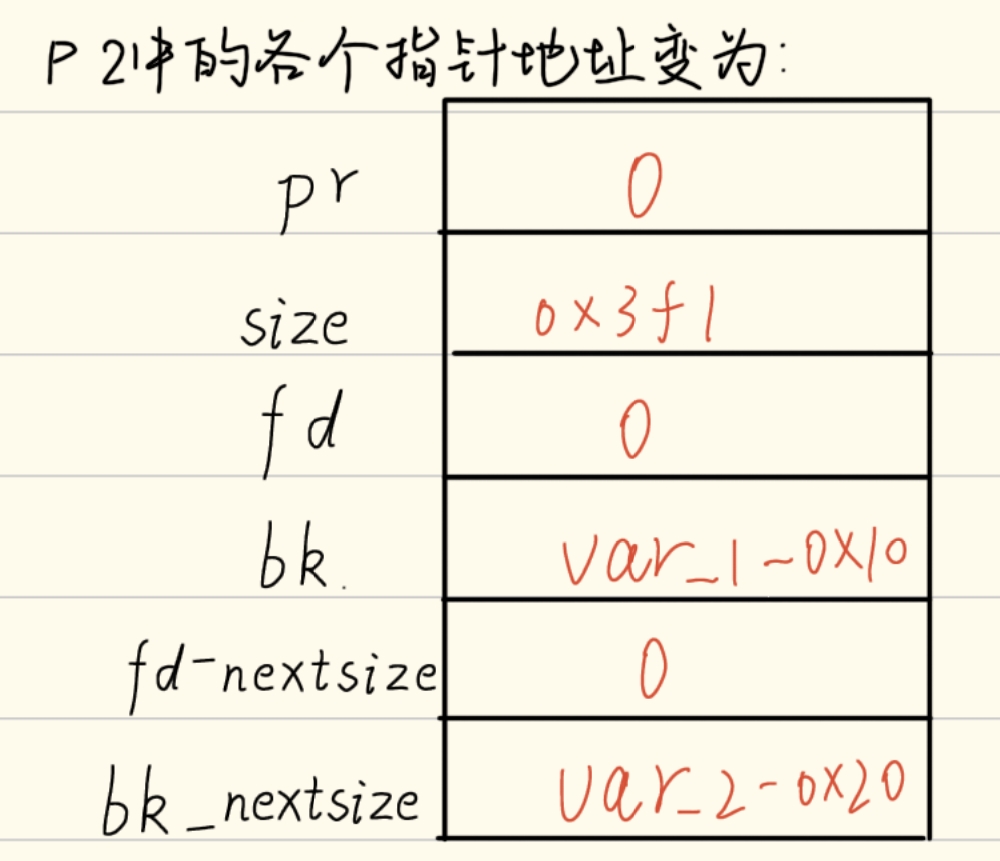 P2中的各个指针地址变为:
pr 0
size 0x3f1
fd 0
bk. var_1-0x10
fd-nextsize 0
bk_nextsize var_2-0x20